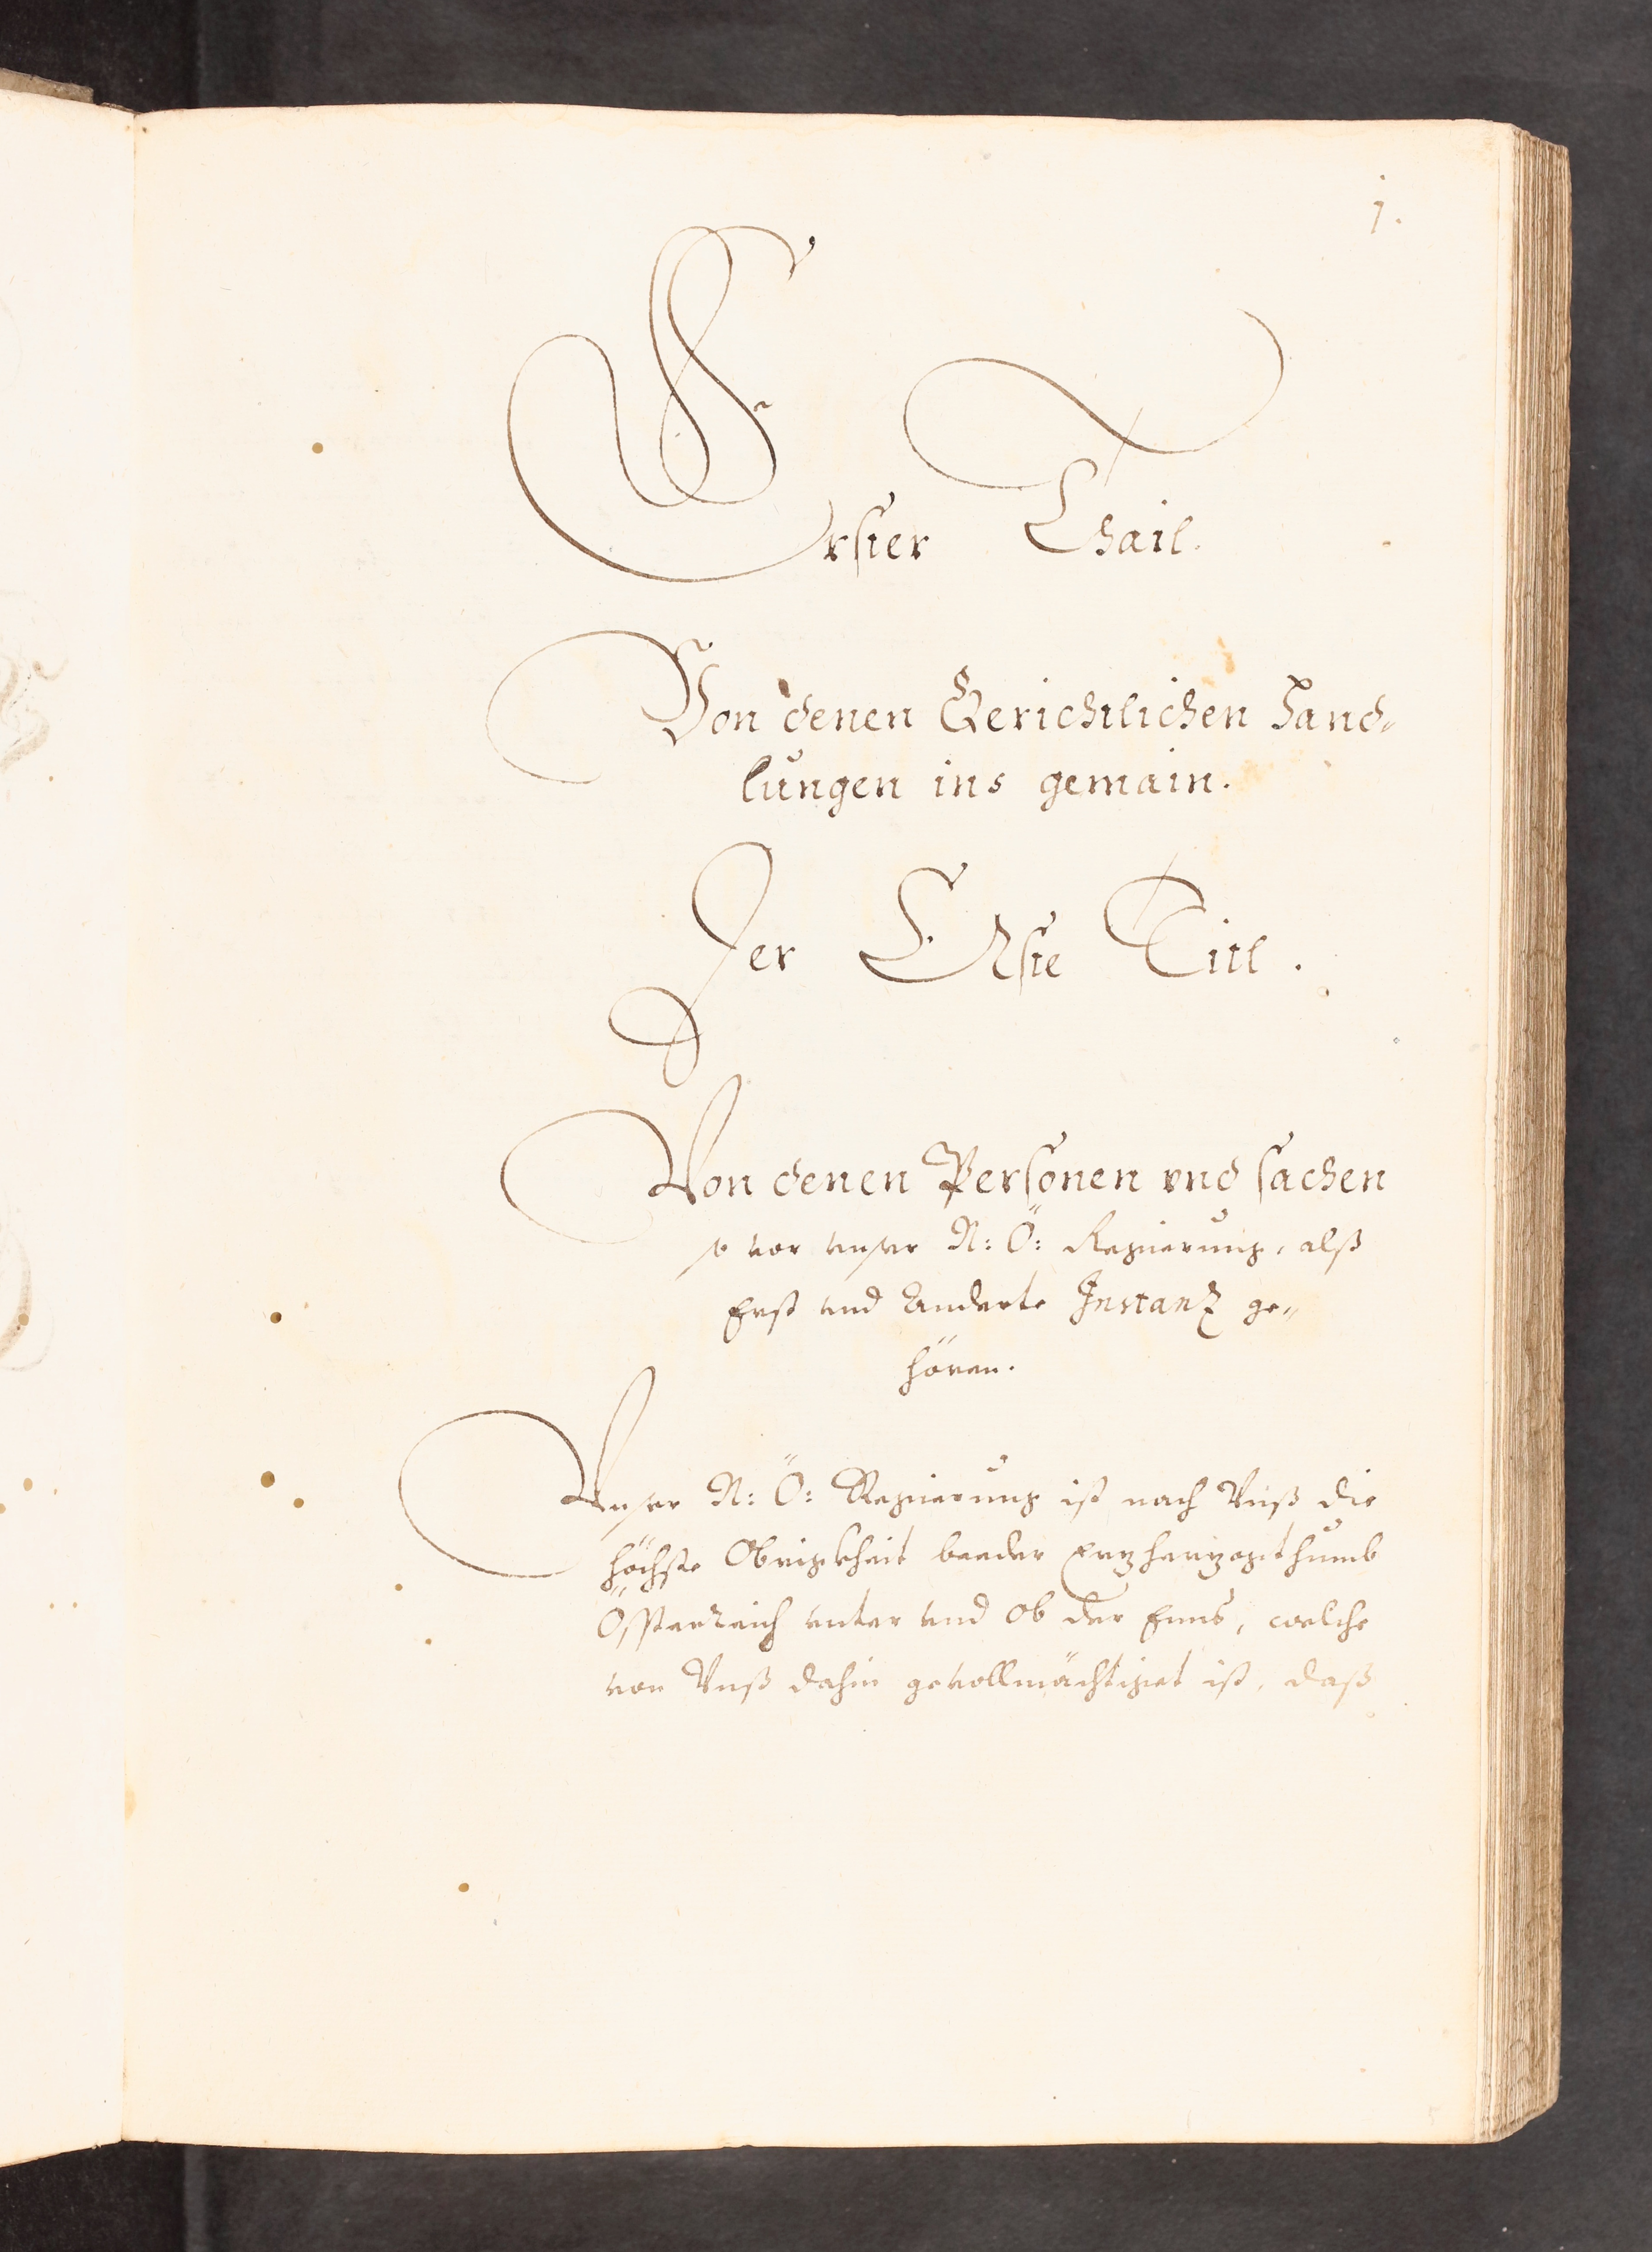 1.
Erster Thail.
Von denen Gerichtlichen Hand-
lungen ins gemain.
Der Erste Titl.
Von denen Persohnen vnd sachen
so vor vnser N: Ö: Regierung, alß
Erst vnd Anderte Instanz ge-
hören.
Vnser N: Ö: Regierung ist nach Vnß die
höchste Obrigkheit beeder Erzherzogthumb
Össterreich vnter vnd ob der Enns, welche
von Vnß dahin gevollmächtiget ist, daß